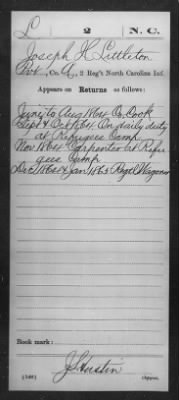 L 2 N.C.
Joseph H Littleton
Pvt., Co. A, 2 Reg't North Carolina Inf.
Appears on Returns as follows:
June to Aug 1864 Co. Cook
Sept & Oct 1864. On daily duty
at Refugees Camp
Nov 1864 Carpenter at Refu
gees Camp
Dec 1864 & Jan 1865 Regtl Wagoner
Book mark:
(546) Copyist.